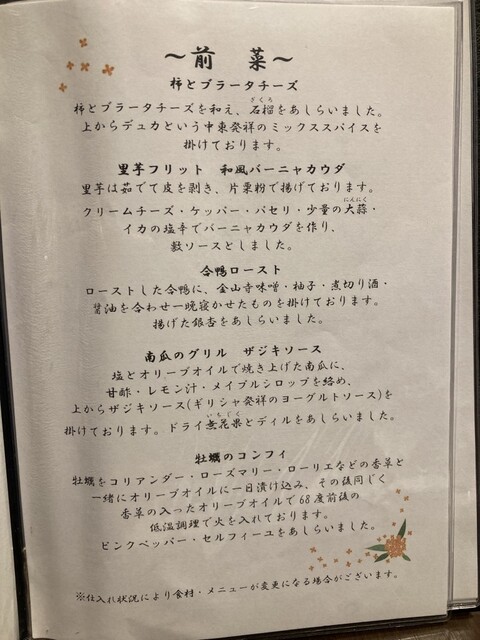 ～前 菜～
柿とブラータチーズ
ざくろ
柿とブラータチーズを和え、石榴をあしらいました。
上からデュカという中東発祥のミックススパイスを
掛けております。
里芋フリット 和風バーニャカウダ
里芋は茹でて皮を剥き、片栗粉で揚げております。
にんにく
クリームチーズ・ケッパー・パセリ・少量の大蒜・
イカの塩辛でバーニャカウダを作り、
敷ソースとしました。
合鴨ロースト
ローストした合鴨に、金山寺味噌・柚子・煮切り酒・
醤油を合わせ一晩寝かせたものを掛けております。
揚げた銀杏をあしらいました。
南瓜のグリル ザジキソース
塩とオリーブオイルで焼き上げた南瓜に、
甘酢・レモン汁・メイプルシロップを絡め、
上からザジキソース(ギリシャ発祥のヨーグルトソース)を
いちじく
掛けております。ドライ無花果とディルをあしらいました。
牡蠣のコンフィ
牡蠣をコリアンダー・ローズマリー・ローリエなどの香草と
一緒にオリーブオイルに一日漬け込み、その後同じく
香草の入ったオリーブオイルで68度前後の
低温調理で火を入れております。
ピンクペッパー・セルフィーユをあしらいました。
※仕入れ状況により食材・メニューが変更になる場合がございます。